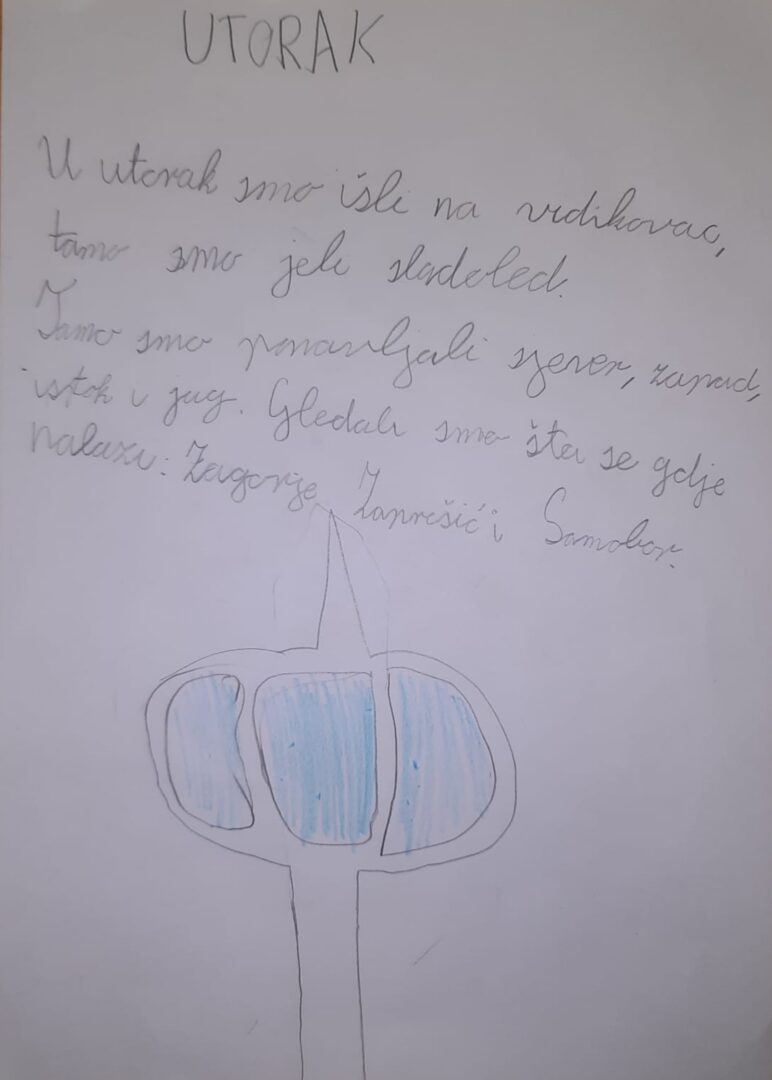 UTORAK
U utorak smo išli na vidikovac,
tamo smo jeli sladoled.
Tamo smo ponavljali sjever, zapad,
istok i jug. Gledali smo šta se gdje
nalazi: Zagorje Zaprešić i Samobor.